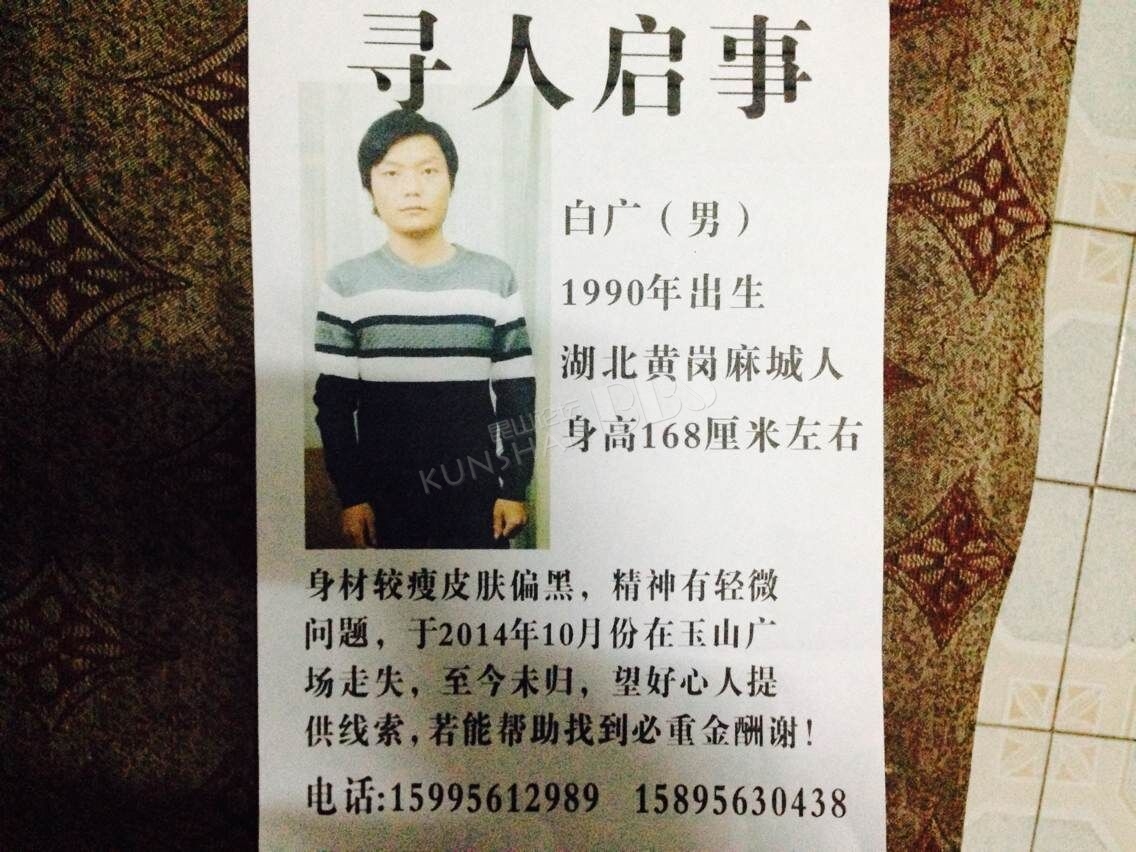 寻人启事
白广（男）
1990年出生
湖北黄岗麻城人
身高168厘米左右
身材较瘦皮肤偏黑，精神有轻微
问题，于2014年10月份在玉山广
场走失，至今未归，望好心人提
供线索，若能帮助找到必重金酬谢！
电话:15995612989 15895630438
昆山论坛 BBS
KUNSHAN